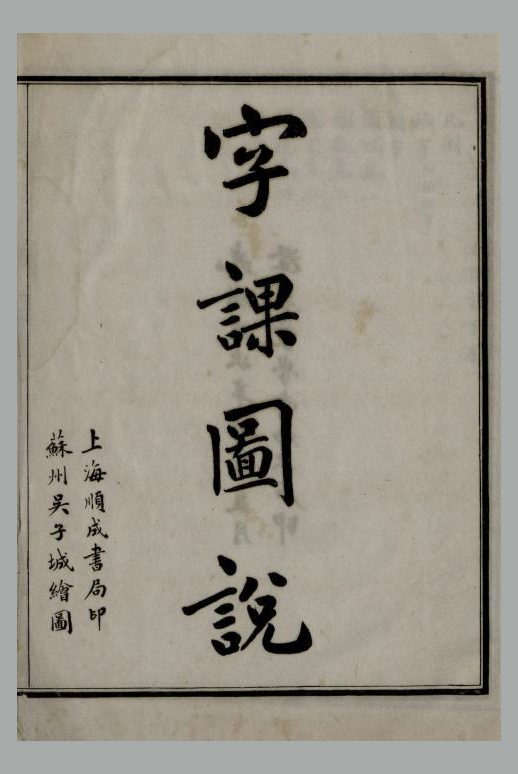 字課圖說
上海順成書局印
蘇州吳子城繪圖